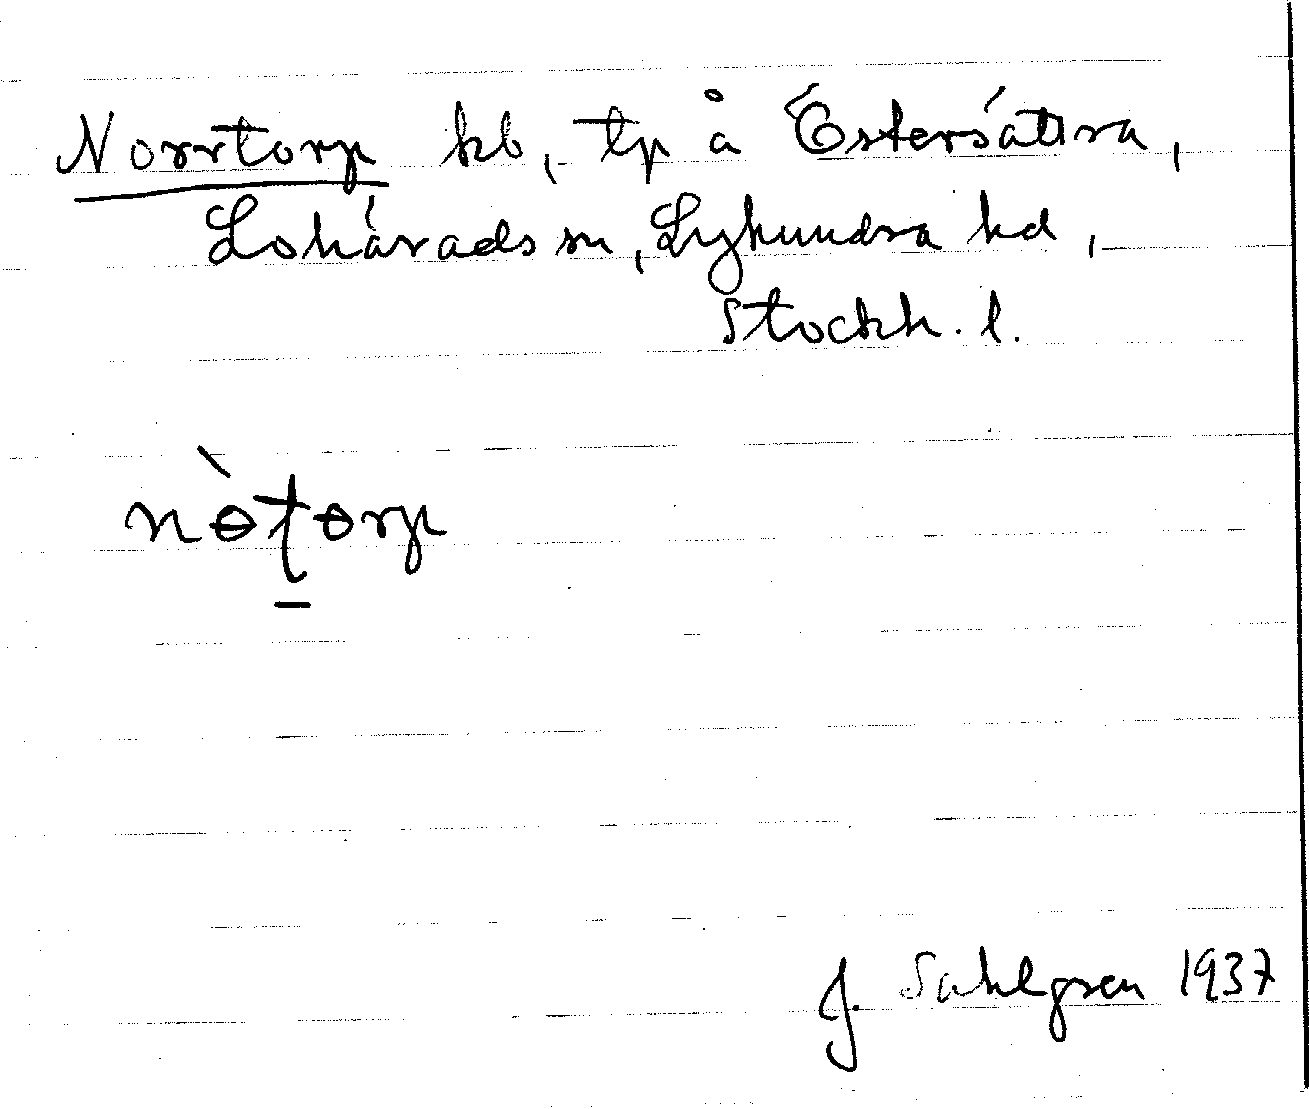 Norrtorp kb, tp å Östersättra,
Lohärads sn, Lyhundra hd,
Stockh. l.
nɵ̀ʈɵrp
J. Sahlgren 1937